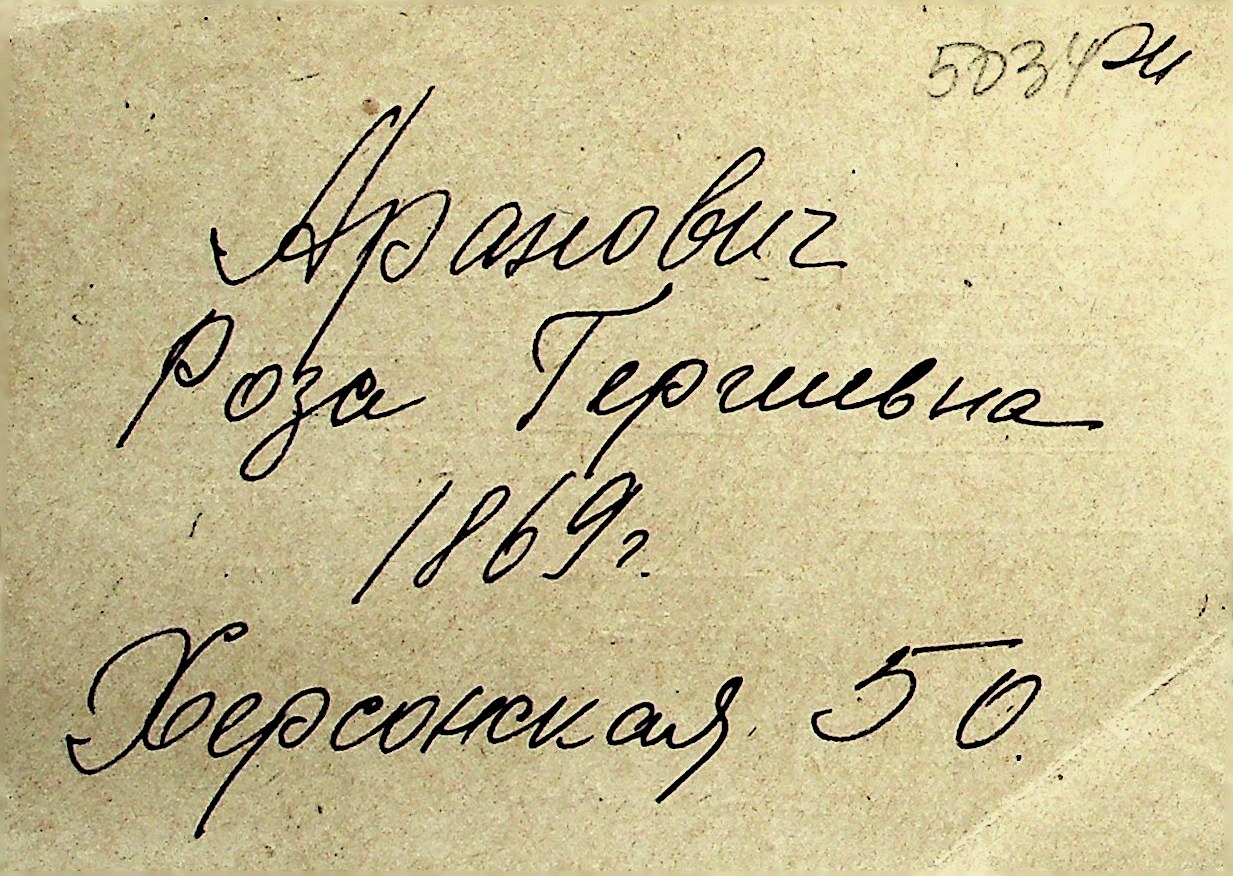 5034
Аранович
Роза Гершевна
1869г.
Херсонская 50.